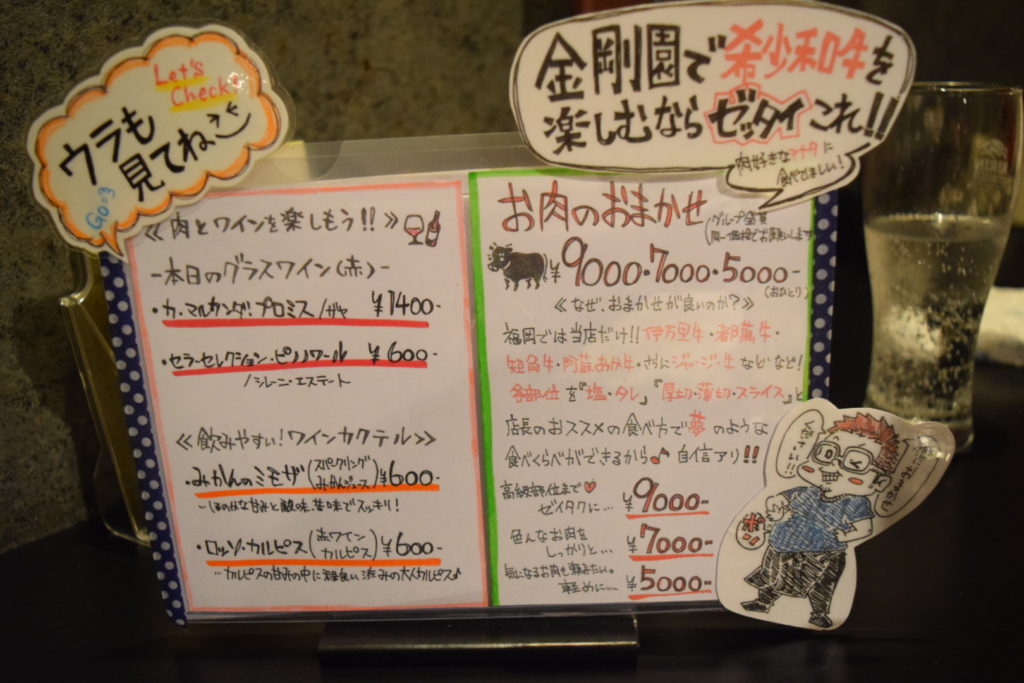 Let's
Check!
ウラも
見てね、
Go=3
金剛園で希少和牛を
楽しむなら ゼッタイ これ!!
肉好きなアナタに
食べてほしい!
≪肉とワインを楽しもう!!≫
-本日のグラスワイン(赤)-
・カ・マルカンダ・プロミス/ガヤ ¥1400-
・セラーセレクション・ピノノワール ¥600-
/シレーニ・エステート
≪飲みやすい!ワインカクテル≫
・みかんのミモザ(スパークリング みかんジュース)¥600-
…ほのかな甘みと酸味、苦味でスッキリ!
・ロッソ・カルピス(赤ワイン カルピス)¥600-
…カルピスの甘みの中に
お肉のおまかせ
(グループ皆賞
同一価格でお願いします
¥9000・7000・5000-
(おひとり)
≪なぜ、おまかせが良いのか?≫
福岡では当店だけ!!伊万里牛・都萬牛・
短角牛・阿蘇あか牛・さらにジャージー牛 などなど!
各部位を『塩・タレ』『厚切・薄切・スライス』と
店長のおススメの食べ方で夢のような
食べくらべができるから♪ 自信アリ!!
高級部位まで♥
ゼイタクに… ¥9000-
色んなお肉を
しっかりと… ¥7000-
気になるお肉も頼みたい。
軽めに… ¥5000-
ポン